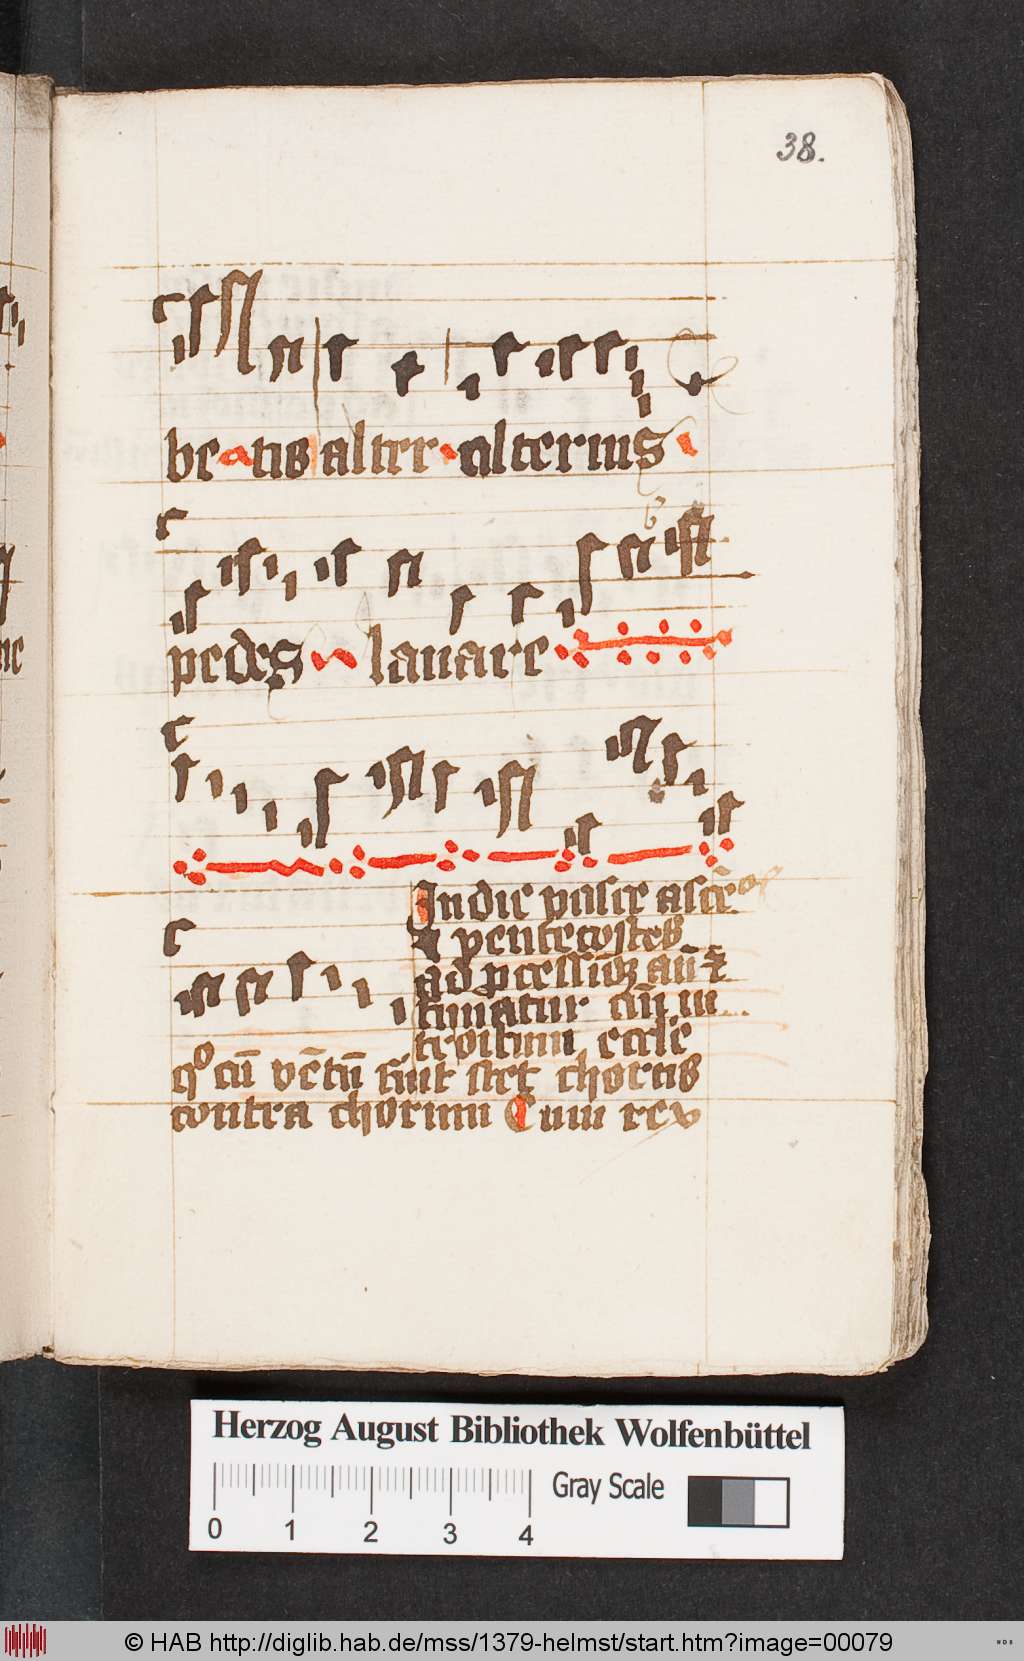 38.
be a tis alter alterius
pedes lauare
In die pasce asceͣ
⁊ pentecostes
ad ꝓcessioꝫ añ ⁊
timatur cũ in
troitum eccłe
qͦ cũ vẽtũ fuit stet chorus
contra chorum Cum rex
Herzog August Bibliothek Wolfenbüttel
0 1 2 3 4
Gray Scale
© HAB http://diglib.hab.de/mss/1379-helmst/start.htm?image=00079